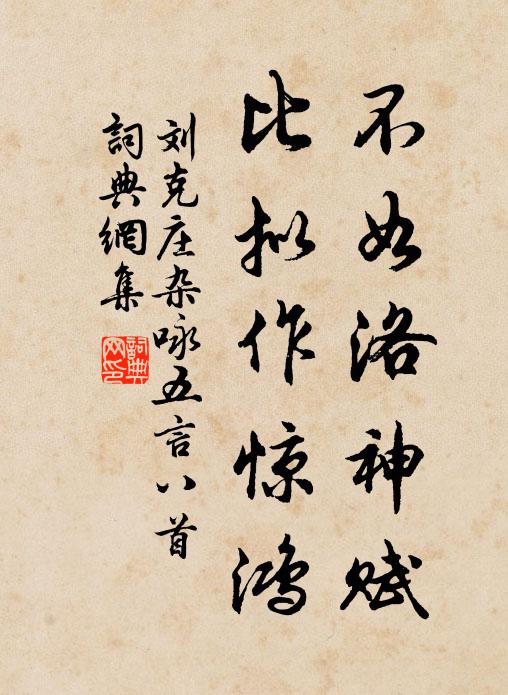 不如洛神赋
比拟作惊鸿
刘克庄杂咏五言八首
詞典網集
詞典网印